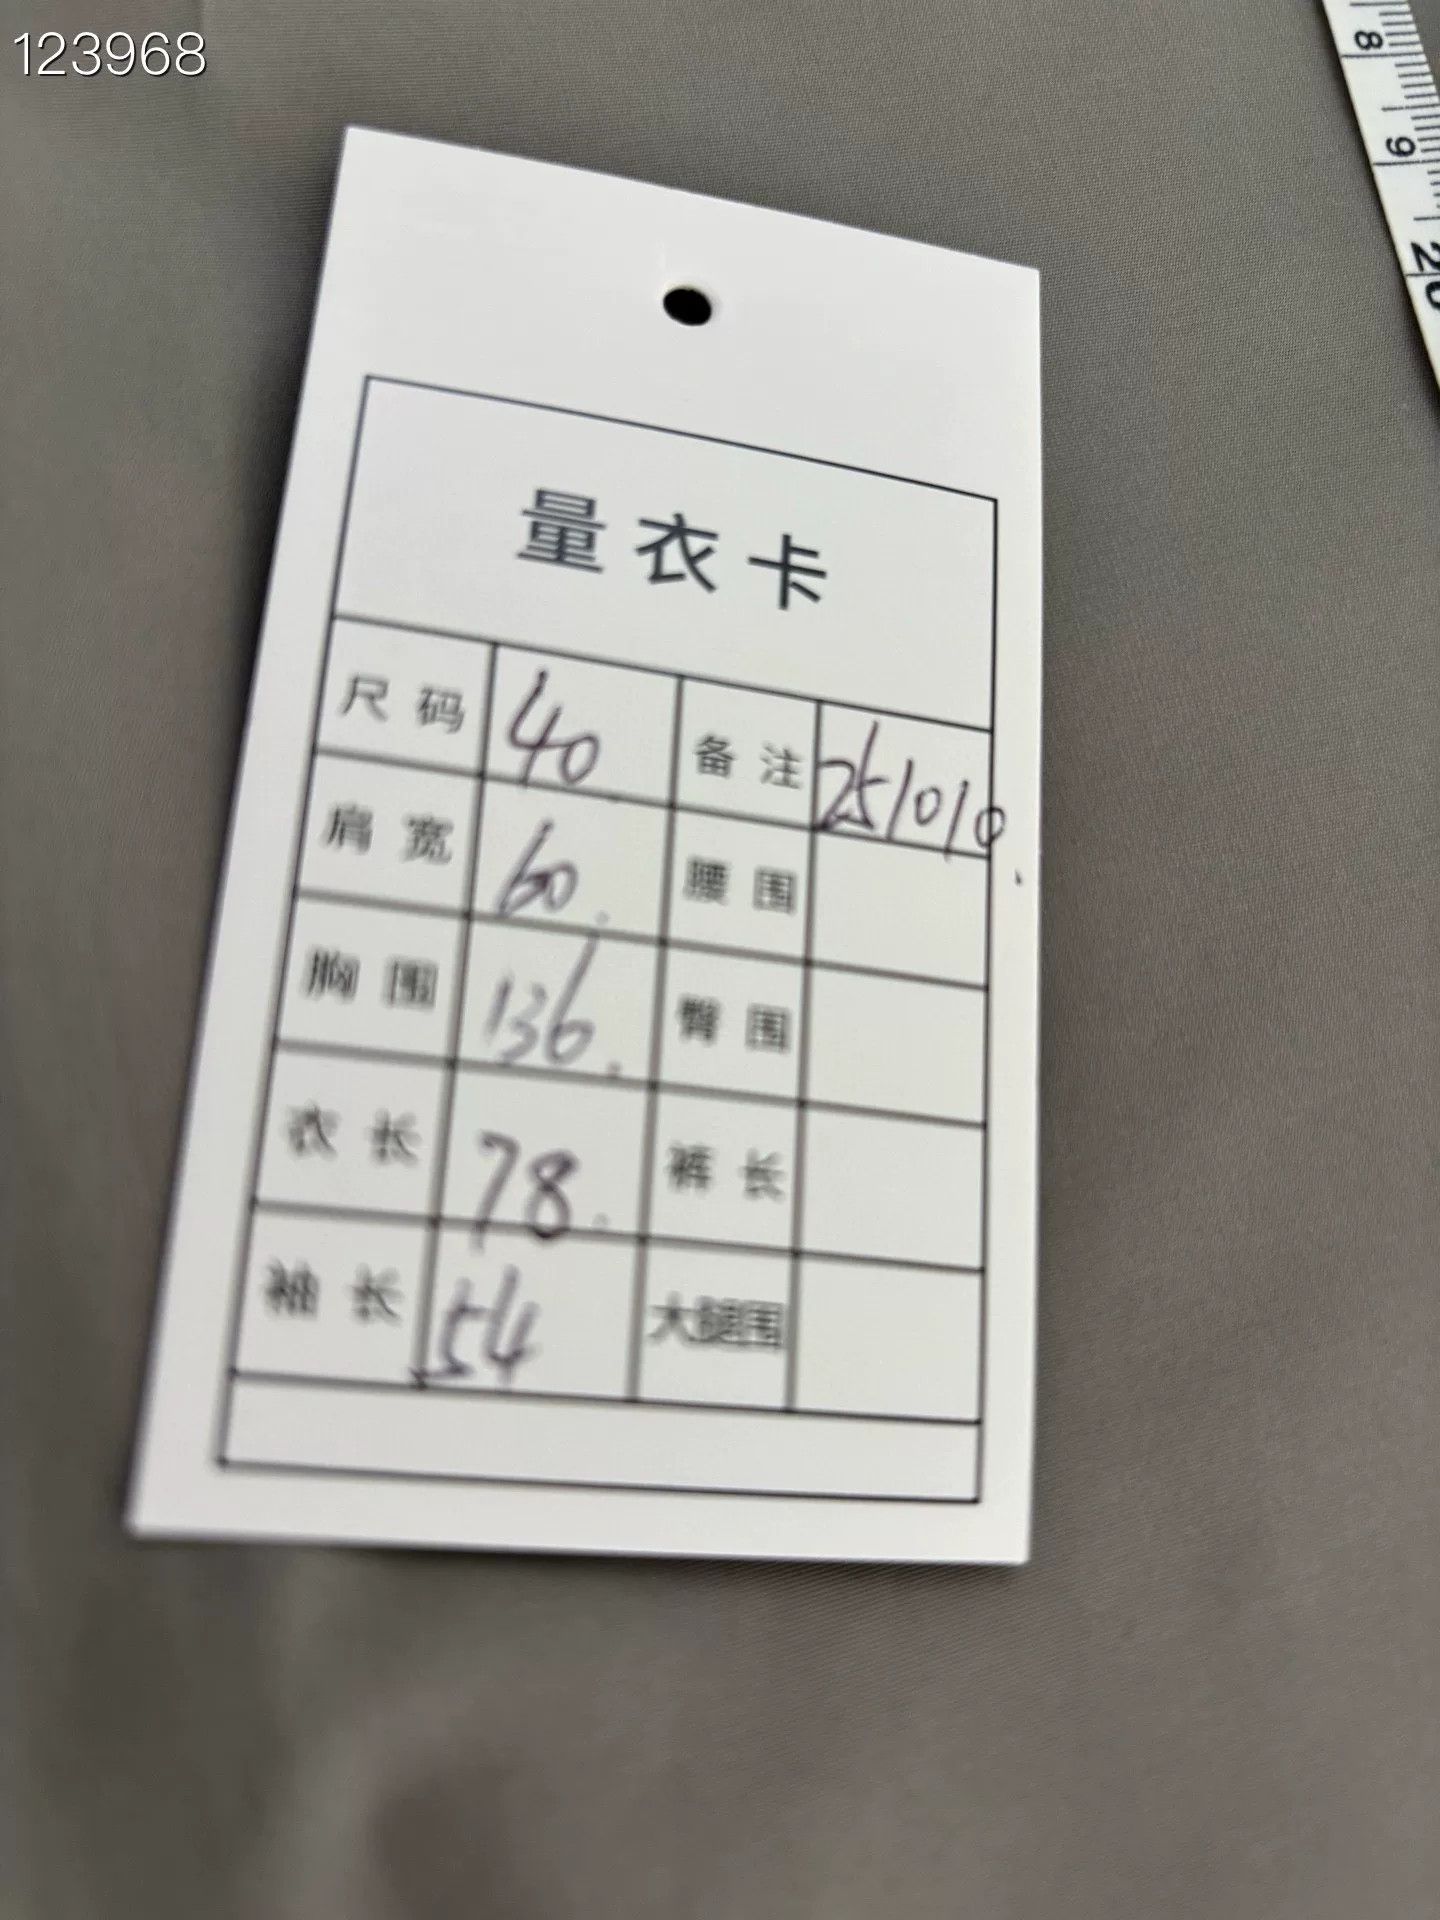 123968
8
9
20
量衣卡
尺码 40 备注 251010
肩宽 60 腰围
胸围 136 臀围
衣长 78 裤长
袖长 54 大腿围